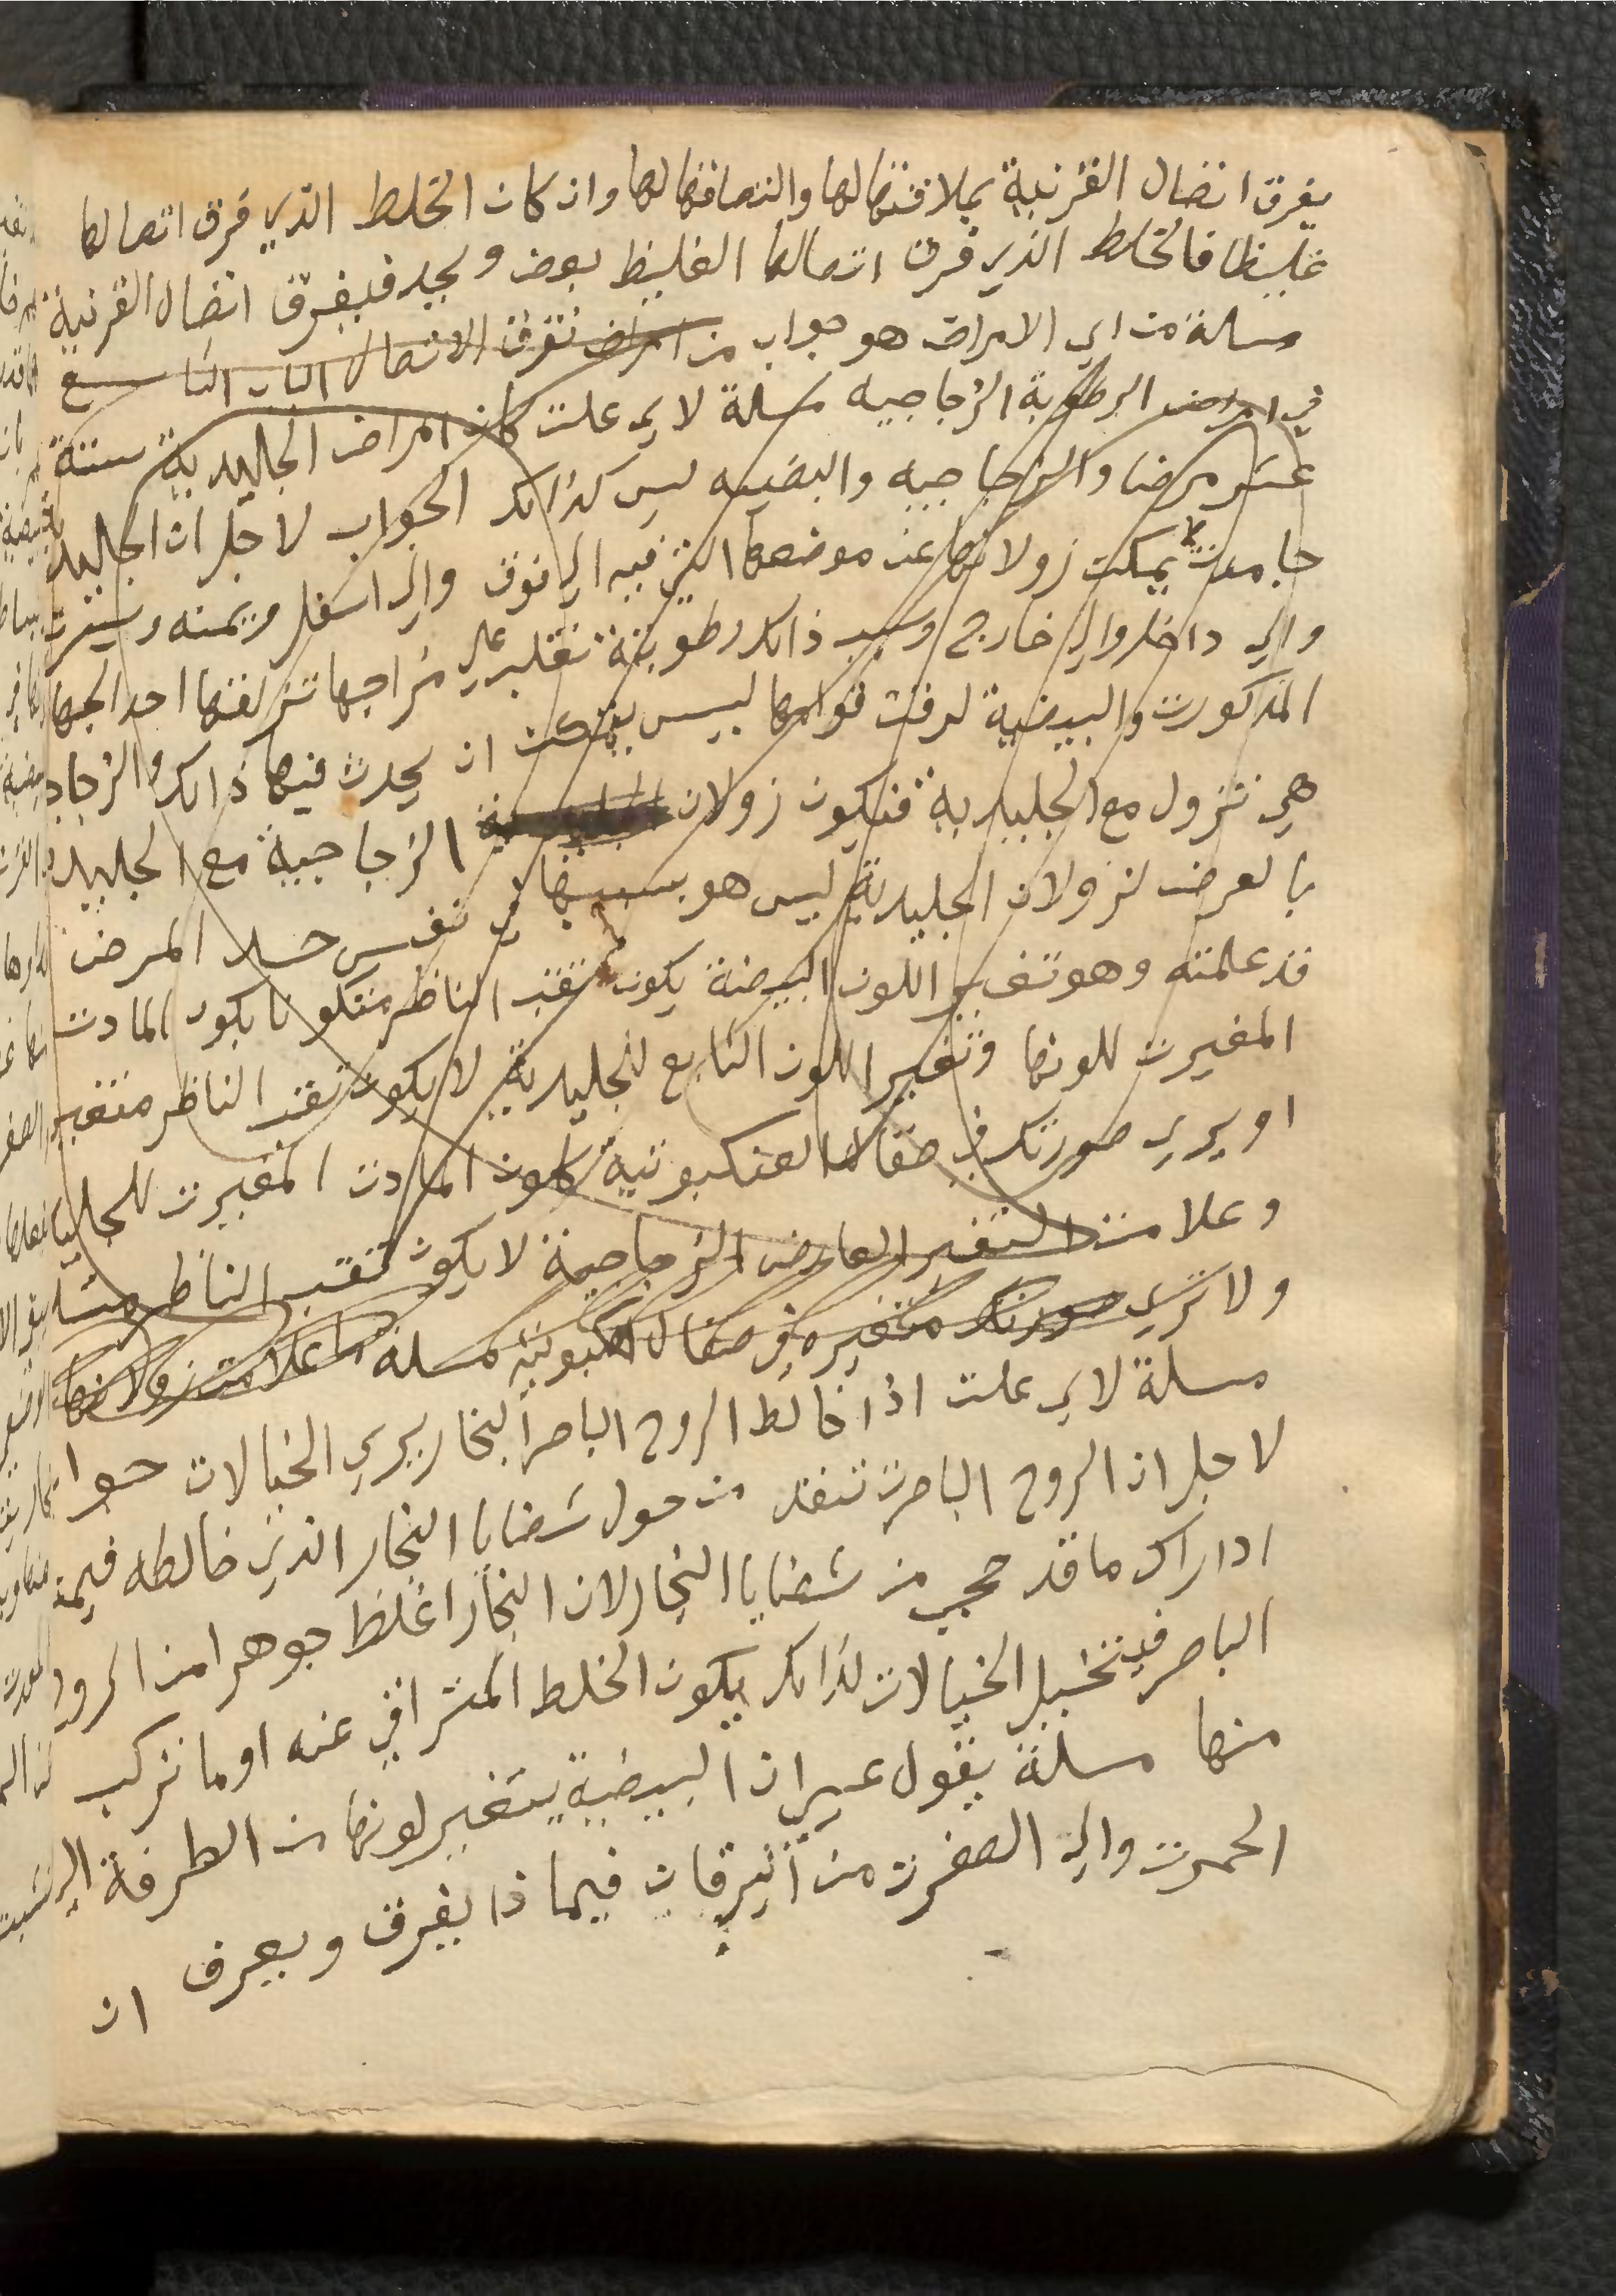 يفرق اتصال القرنية بملاقتها لها والتصاقها لها وان كان الخلط الذي فرق اتصالها
غليظا فالخلط الذي فرق اتصالها الغليظ بعض ويجد فيفرق اتصال القرنية
مسلة من اي الامراض هو جواب من امراض تفرق الاتصال الباب التاسع
في امراض الرطوبة الزجاجيه مسلة لاي علت كان امراض الجليدية ستة
عشر مرضا والزجاجيه والبيضيه ليس كذالك الجواب لاجل ان الجليد
جامدت يمكن زولانها عن موضعها التي فيه الي فوق والي اسفل ويمنه ويسرت
والي داخل والي خارج وسبب ذالك رطوبة تغلب علي مزاجها تزلقها احد الجها
المذكورت والبيضية لرقت قوامها ليس يمكن ان يحدث فيها ذالك والزجاج
هي تزول مع الجليدية فيكون زولان الزجاجية مع الجليد
بالعرض لزولان الجليدية ليس هو بسببها في نفس حد المرض
قد علمته وهو تغير اللون البيضة يكون ثقب الناظر متكونا بكون المادت
المغيرت للونها وتغير اللون التابع للجليدية لا يكون ثقب الناظر متغير
او يري صورتك في صقال العنكبوتية كلون المادت المغيرت للجليد
وعلامت التغير العارض الزجاجية لا يكون ثقب الناظر
ولا تري صورتك متغيره في صقال مسلة ما علامت زولانها
مسلة لاي علت اذا خالط الروح الباصر البخار يري الخيالات جوا
لاجل ان الروح الباصرت تنفد من حول شضايا البخار الذي خالطه فيمنع
ادراك ما قد حجي من شضايا البخار لان البخار اغلظ جوهرا من الروح
الباصر فيتخيل الخيالات لذالك يكون الخلط المتراقي عنه او ما تركب
منها مسلة يقول عيسى ان البيضية يتغير لونها من الطرفة الي
الحمرت والي الصفرت من اليرقان فيماذا يفرق ويعرف ان